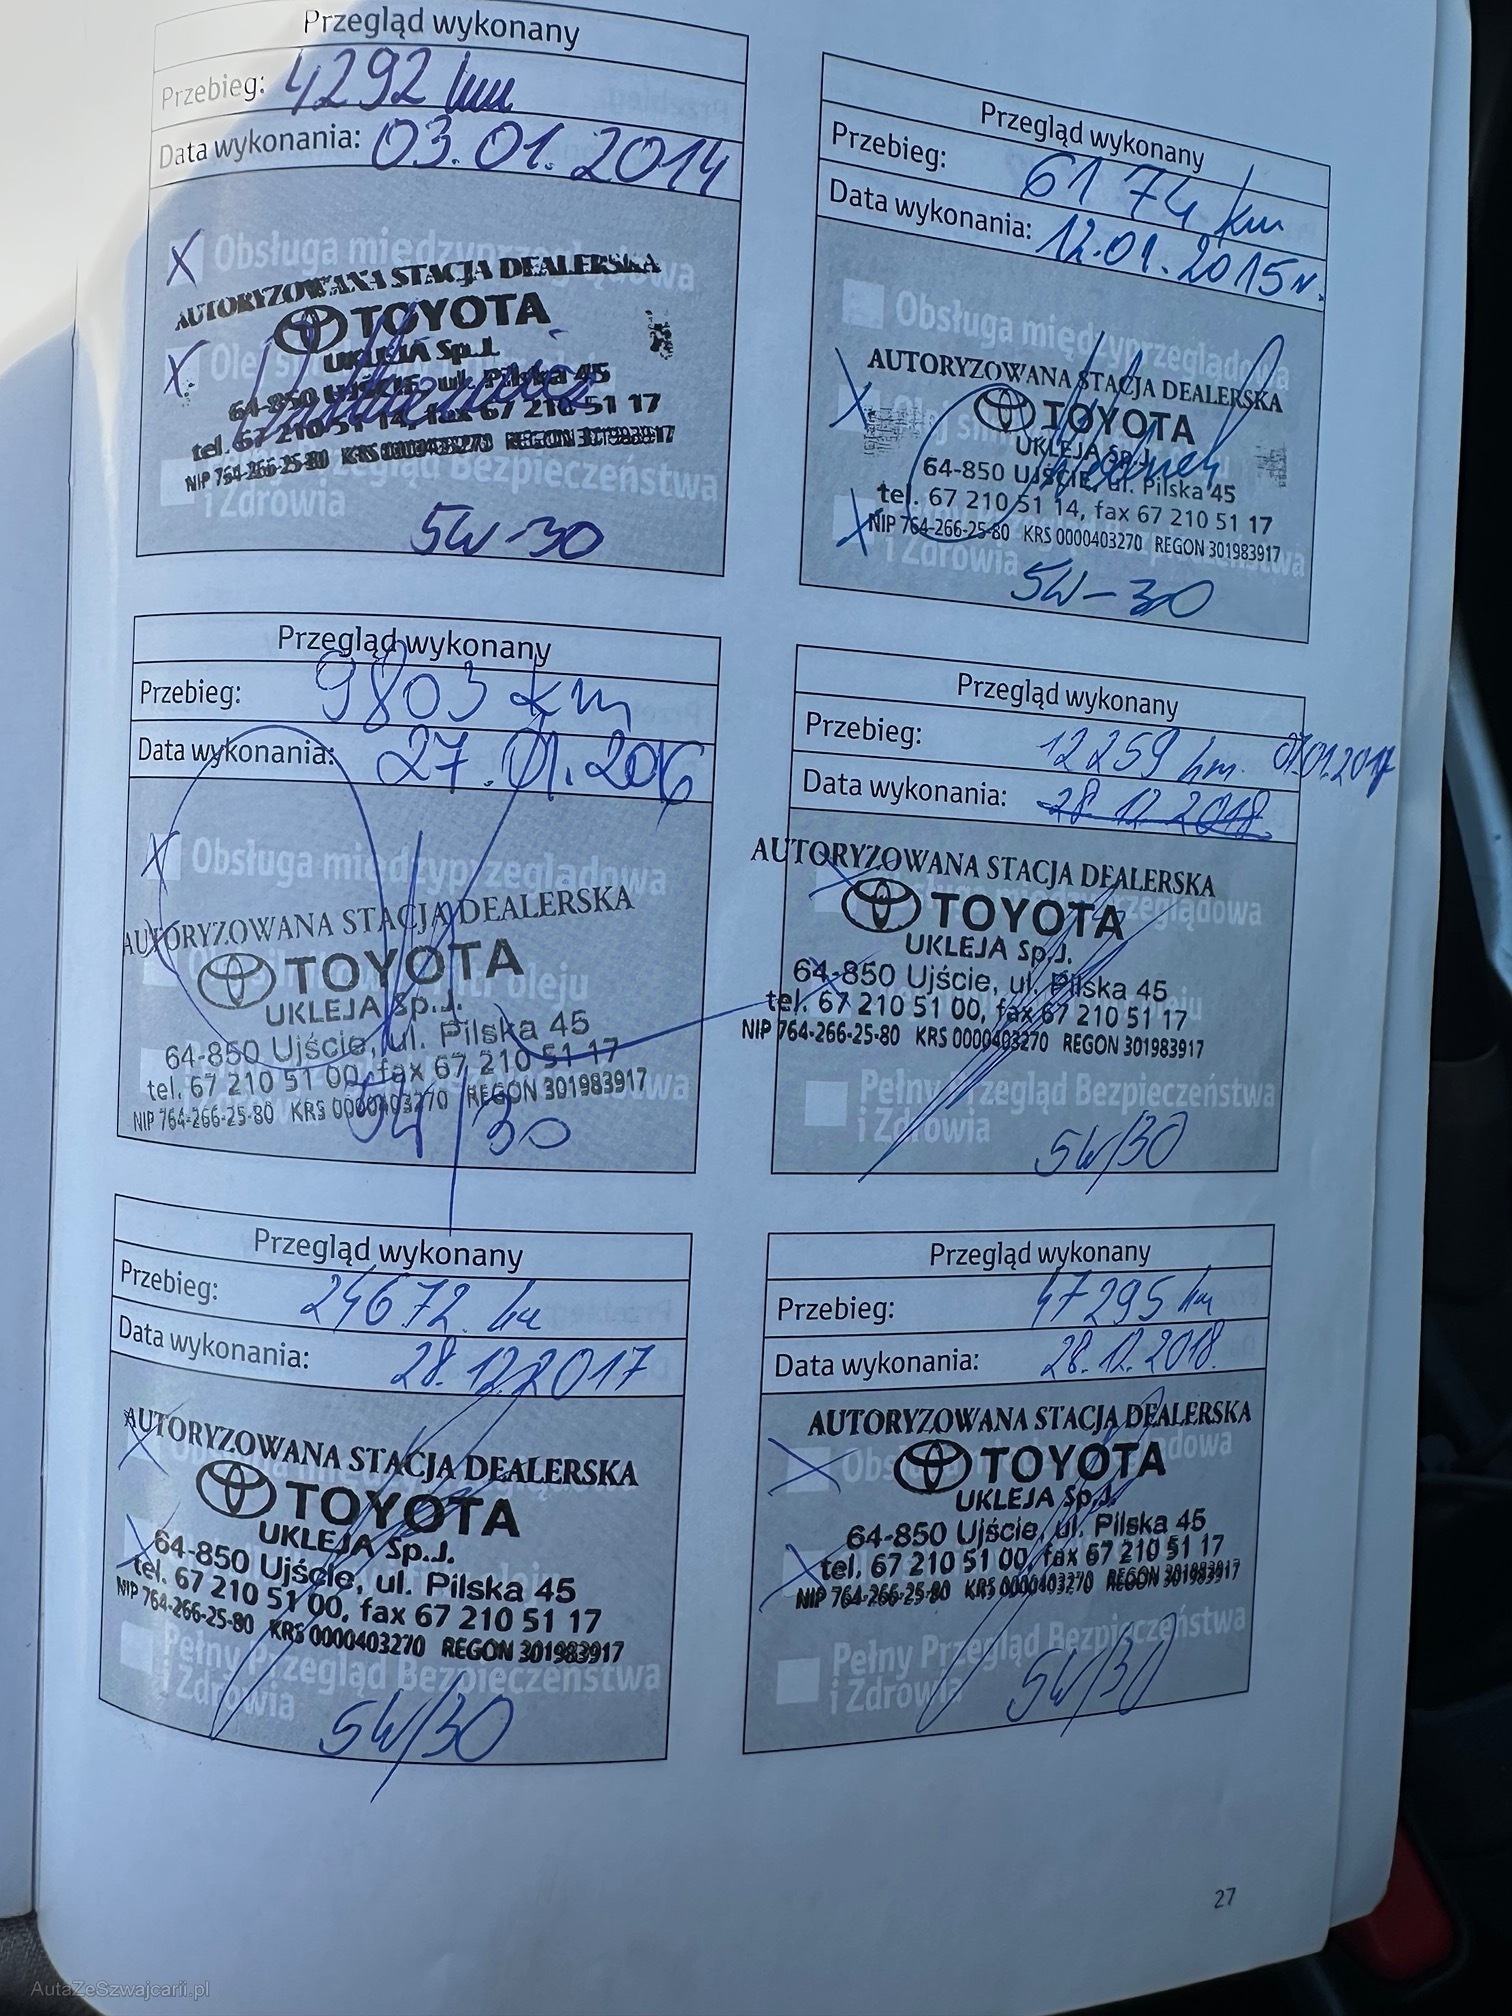 Przegląd wykonany
Przebieg: 4292 km
Data wykonania: 03.01.2014
Obsługa międzyprzeglądowa
AUTORYZOWANA STACJA DEALERSKA
TOYOTA
UKLEJA Sp.J.
64-850 UJŚCIE, ul. Pilska 45
tel. 67 210 51 14, fax 67 210 51 17
NIP 764-266-25-80 KRS 0000403270 REGON 301983917
Przegląd Bezpieczeństwa
i Zdrowia
5W-30
Przegląd wykonany
Przebieg: 6174 km
Data wykonania: 12.01.2015r.
Obsługa międzyprzeglądowa
AUTORYZOWANA STACJA DEALERSKA
TOYOTA
UKLEJA Sp.J.
64-850 UJŚCIE, ul. Pilska 45
tel. 67 210 51 14, fax 67 210 51 17
NIP 764-266-25-80 KRS 0000403270 REGON 301983917
i Zdrowia
5W-30
Przegląd wykonany
Przebieg: 9803 km
Data wykonania: 27.01.2016
Obsługa międzyprzeglądowa
AUTORYZOWANA STACJA DEALERSKA
TOYOTA
oleju
UKLEJA Sp.J.
64-850 Ujście, ul. Pilska 45
tel. 67 210 51 00, fax 67 210 51 17
NIP 764-266-25-80 KRS 0000403270 REGON 301983917
5W/30
Przegląd wykonany
Przebieg: 12259 km. 07.01.2017
Data wykonania: 28.12.2018.
AUTORYZOWANA STACJA DEALERSKA
TOYOTA
UKLEJA Sp.J.
64-850 Ujście, ul. Pilska 45
tel. 67 210 51 00, fax 67 210 51 17
NIP 764-266-25-80 KRS 0000403270 REGON 301983917
Pełny Przegląd Bezpieczeństwa
i Zdrowia
5W/30
Przegląd wykonany
Przebieg: 24672 km
Data wykonania: 28.12.2017
AUTORYZOWANA STACJA DEALERSKA
TOYOTA
UKLEJA Sp.J.
64-850 Ujście, ul. Pilska 45
tel. 67 210 51 00, fax 67 210 51 17
NIP 764-266-25-80 KRS 0000403270 REGON 301983917
Pełny Przegląd Bezpieczeństwa
i Zdrowia
5W/30
Przegląd wykonany
Przebieg: 47295 km
Data wykonania: 28.12.2018.
AUTORYZOWANA STACJA DEALERSKA
TOYOTA
UKLEJA Sp.J.
64-850 Ujście, ul. Pilska 45
tel. 67 210 51 00, fax 67 210 51 17
NIP 764-266-25-80 KRS 0000403270 REGON 301983917
Pełny Przegląd Bezpieczeństwa
i Zdrowia
5W/30
27
AutaZeSzwajcarii.pl